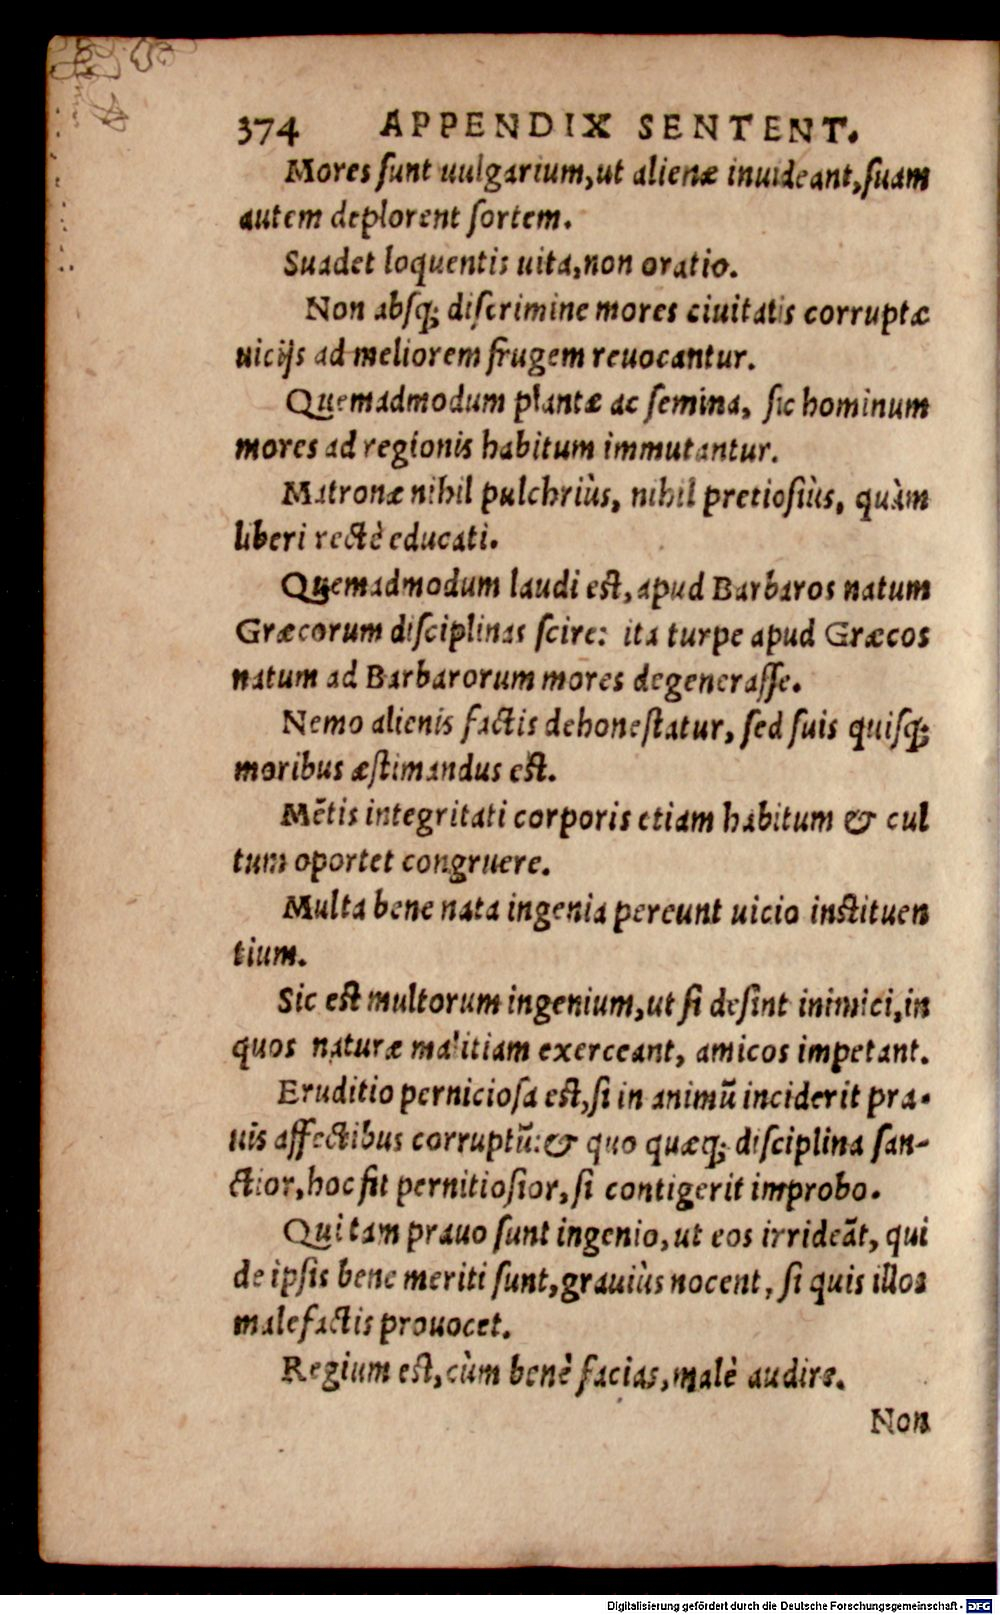 374 APPENDIX SENTENT.
Mores ſunt uulgarium, ut alienæ inuideant, ſuam
autem deplorent ſortem.
Suadet loquentis uita, non oratio.
Non abſq; diſcrimine mores ciuitatis corruptæ
uicijs ad meliorem frugem reuocantur.
Quemadmodum plantæ ac ſemina, ſic hominum
mores ad regionis habitum immutantur.
Matronæ nihil pulchriùs, nihil pretioſiùs, quàm
liberi rectè educati.
Quemadmodum laudi est, apud Barbaros natum
Græcorum diſciplinas ſcire: ita turpe apud Græcos
natum ad Barbarorum mores degeneraſſe.
Nemo alienis factis dehoneſtatur, ſed ſuis quiſq;
moribus æſtimandus eſt.
Mētis integritati corporis etiam habitum & cul
tum oportet congruere.
Multa bene nata ingenia pereunt uicio inſtituen
tium.
Sic eſt multorum ingenium, ut ſi deſint inimici, in
quos naturæ malitiam exerceant, amicos impetant.
Eruditio pernicioſa eſt, ſi in animū inciderit pra-
uis affectibus corruptū: & quo quæq; diſciplina ſan-
ctior, hoc fit pernitioſior, ſi contigerit improbo.
Qui tam prauo ſunt ingenio, ut eos irrideāt, qui
de ipſis bene meriti ſunt, grauiùs nocent, ſi quis illos
malefactis prouocet.
Regium eſt, cùm benè facias, malè audire.
Non
Digitalisierung gefördert durch die Deutsche Forschungsgemeinschaft - DFG